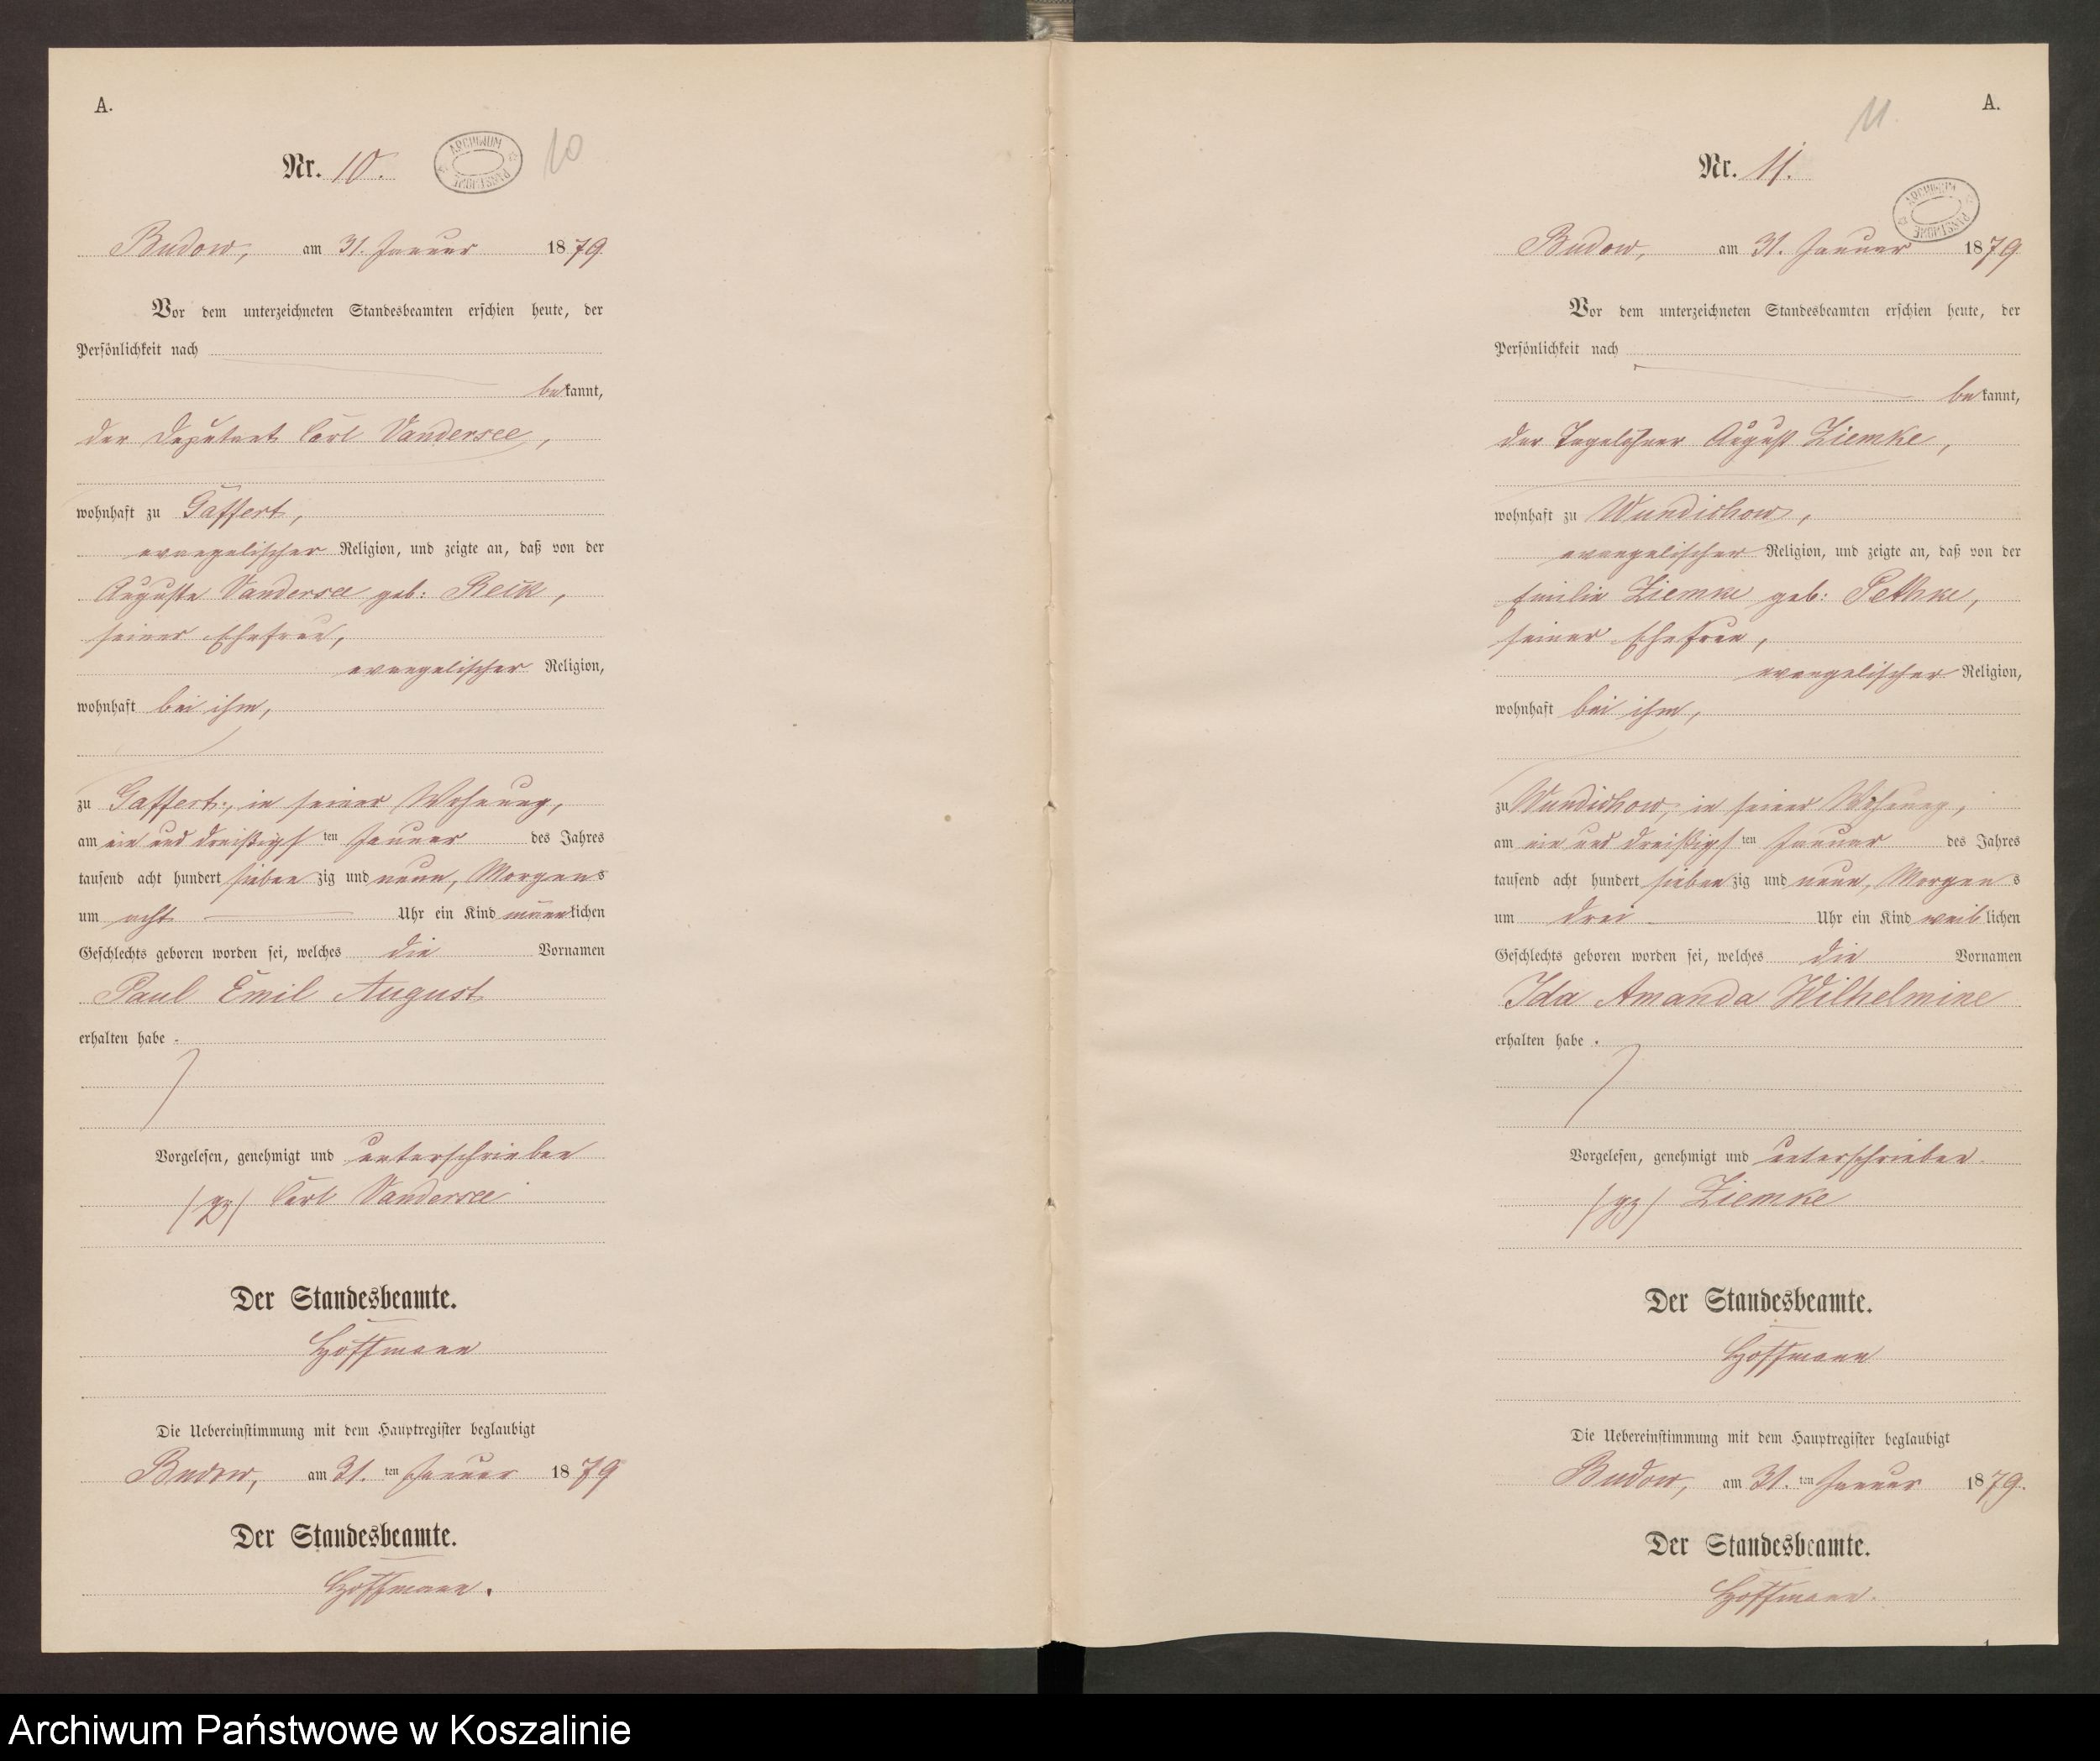 A.
Nr. 10.
ARCHIWUM PAŃSTWOWE
10
Budow, am 31. Januar 1879.
Vor dem unterzeichneten Standesbeamten erschien heute, der
Persönlichkeit nach
bekannt,
der Deputant Carl Vandersee,
wohnhaft zu Gaffert,
evangelischer Religion, und zeigte an, daß von der
Auguste Vandersee geb: Reck,
seiner Ehefrau,
evangelischer Religion,
wohnhaft bei ihm,
zu Gaffert, in seiner Wohnung,
am ein und dreißigsten Januar des Jahres
tausend acht hundert siebenzig und neun, Morgens
um acht Uhr ein Kind männlichen
Geschlechts geboren worden sei, welches die Vornamen
Paul Emil August
erhalten habe.
Vorgelesen, genehmigt und unterschrieben
(gz) Carl Vandersee
Der Standesbeamte.
Hoffmann
Die Uebereinstimmung mit dem Hauptregister beglaubigt
Budow, am 31. ten Januar 1879
Der Standesbeamte.
Hoffmann.
A.
11.
Nr. 11.
ARCHIWUM PAŃSTWOWE
Budow, am 31. Januar 1879
Vor dem unterzeichneten Standesbeamten erschien heute, der
Persönlichkeit nach
bekannt,
der Tagelöhner August Ziemke,
wohnhaft zu Wundichow,
evangelischer Religion, und zeigte an, daß von der
Emilie Ziemke geb: Pethke,
seiner Ehefrau,
evangelischer Religion,
wohnhaft bei ihm,
zu Wundichow, in seiner Wohnung,
am ein und dreißigsten Januar des Jahres
tausend acht hundert siebenzig und neun, Morgens
um drei Uhr ein Kind weiblichen
Geschlechts geboren worden sei, welches die Vornamen
Ida Amanda Wilhelmine
erhalten habe.
Vorgelesen, genehmigt und unterschrieben.
(gz) Ziemke
Der Standesbeamte.
Hoffmann
Die Uebereinstimmung mit dem Hauptregister beglaubigt
Budow, am 31. ten Januar 1879.
Der Standesbeamte.
Hoffmann.
1
Archiwum Państwowe w Koszalinie